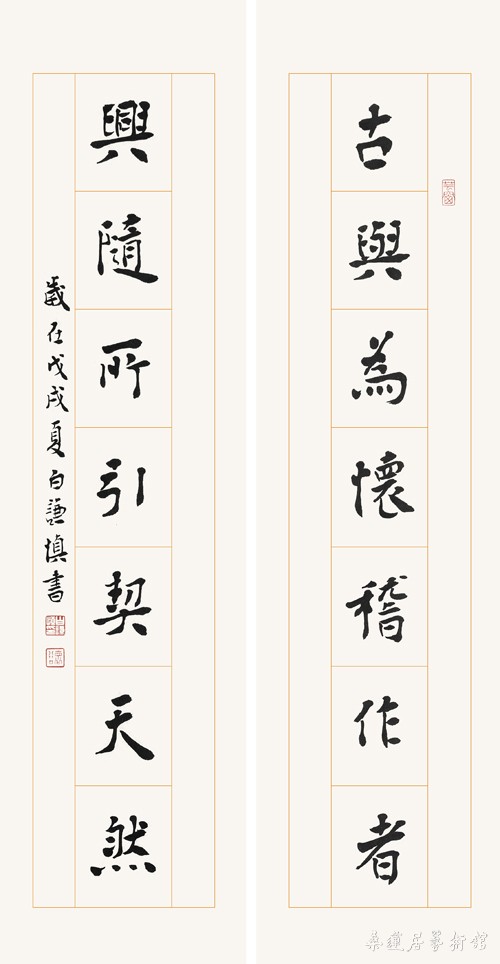 古與為懷稽作者
興隨所引契天然
歲在戊戌夏白謙慎書
桑蓮居藝術館